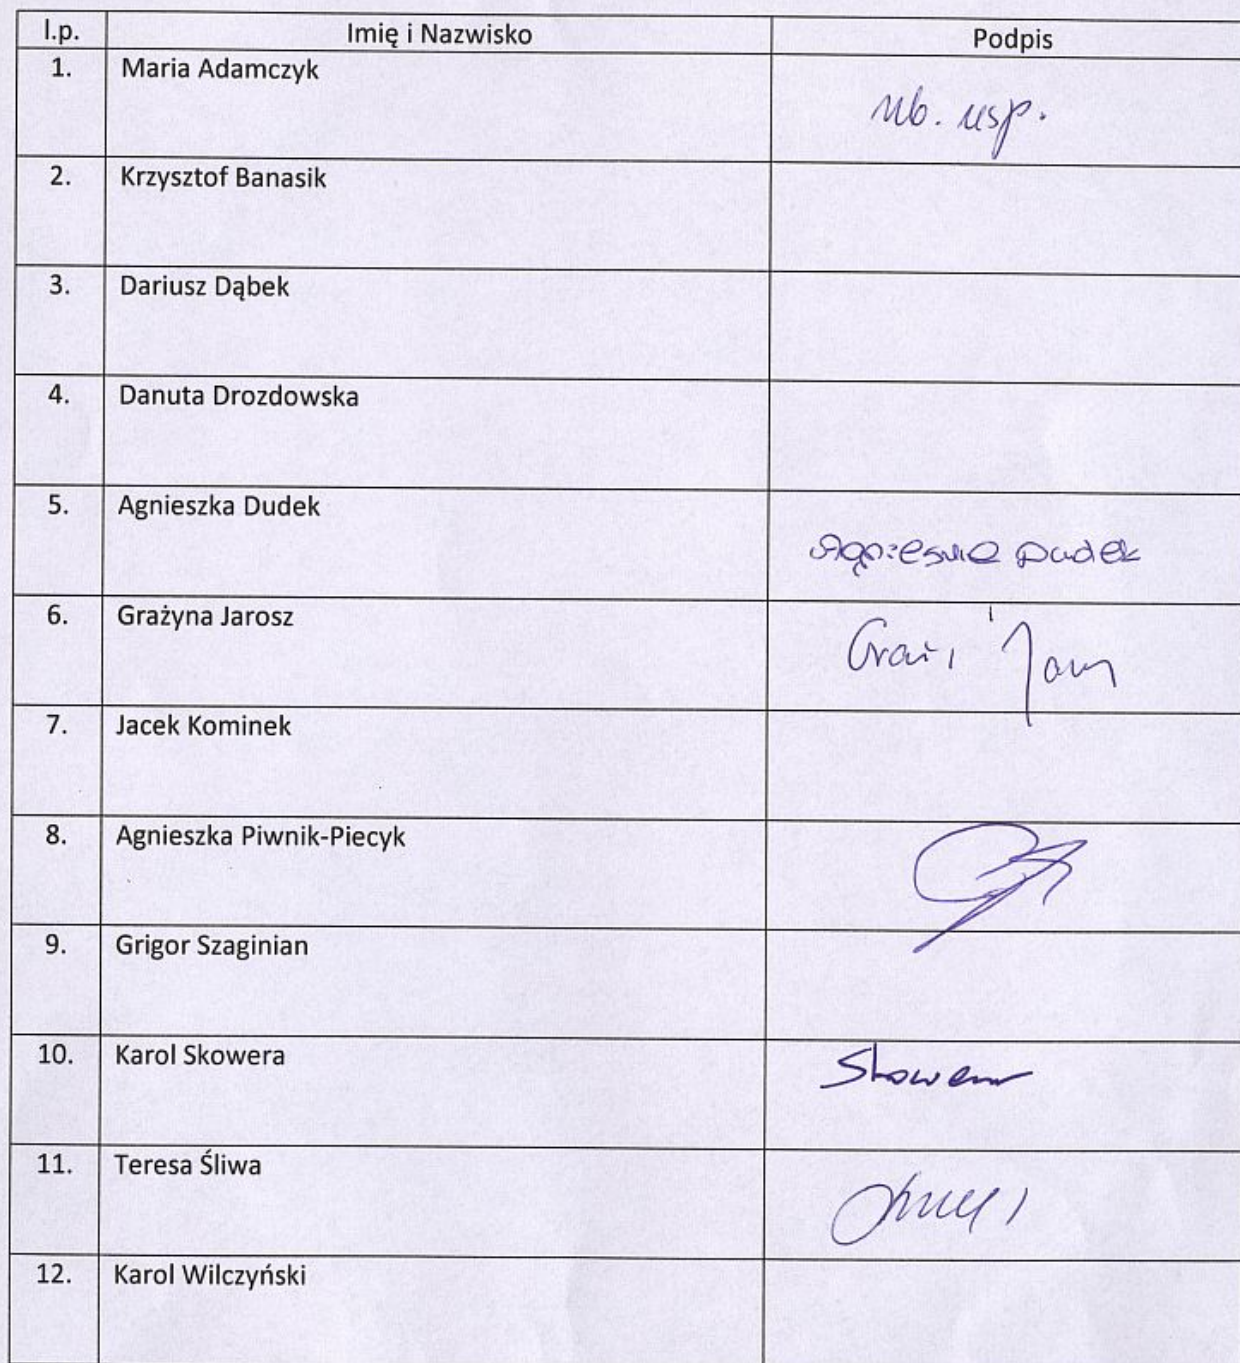 l.p. Imię i Nazwisko Podpis
1. Maria Adamczyk
nb. usp.
2. Krzysztof Banasik
3. Dariusz Dąbek
4. Danuta Drozdowska
5. Agnieszka Dudek
Dudek
6. Grażyna Jarosz
7. Jacek Kominek
8. Agnieszka Piwnik-Piecyk
9. Grigor Szaginian
10. Karol Skowera
11. Teresa Śliwa
12. Karol Wilczyński